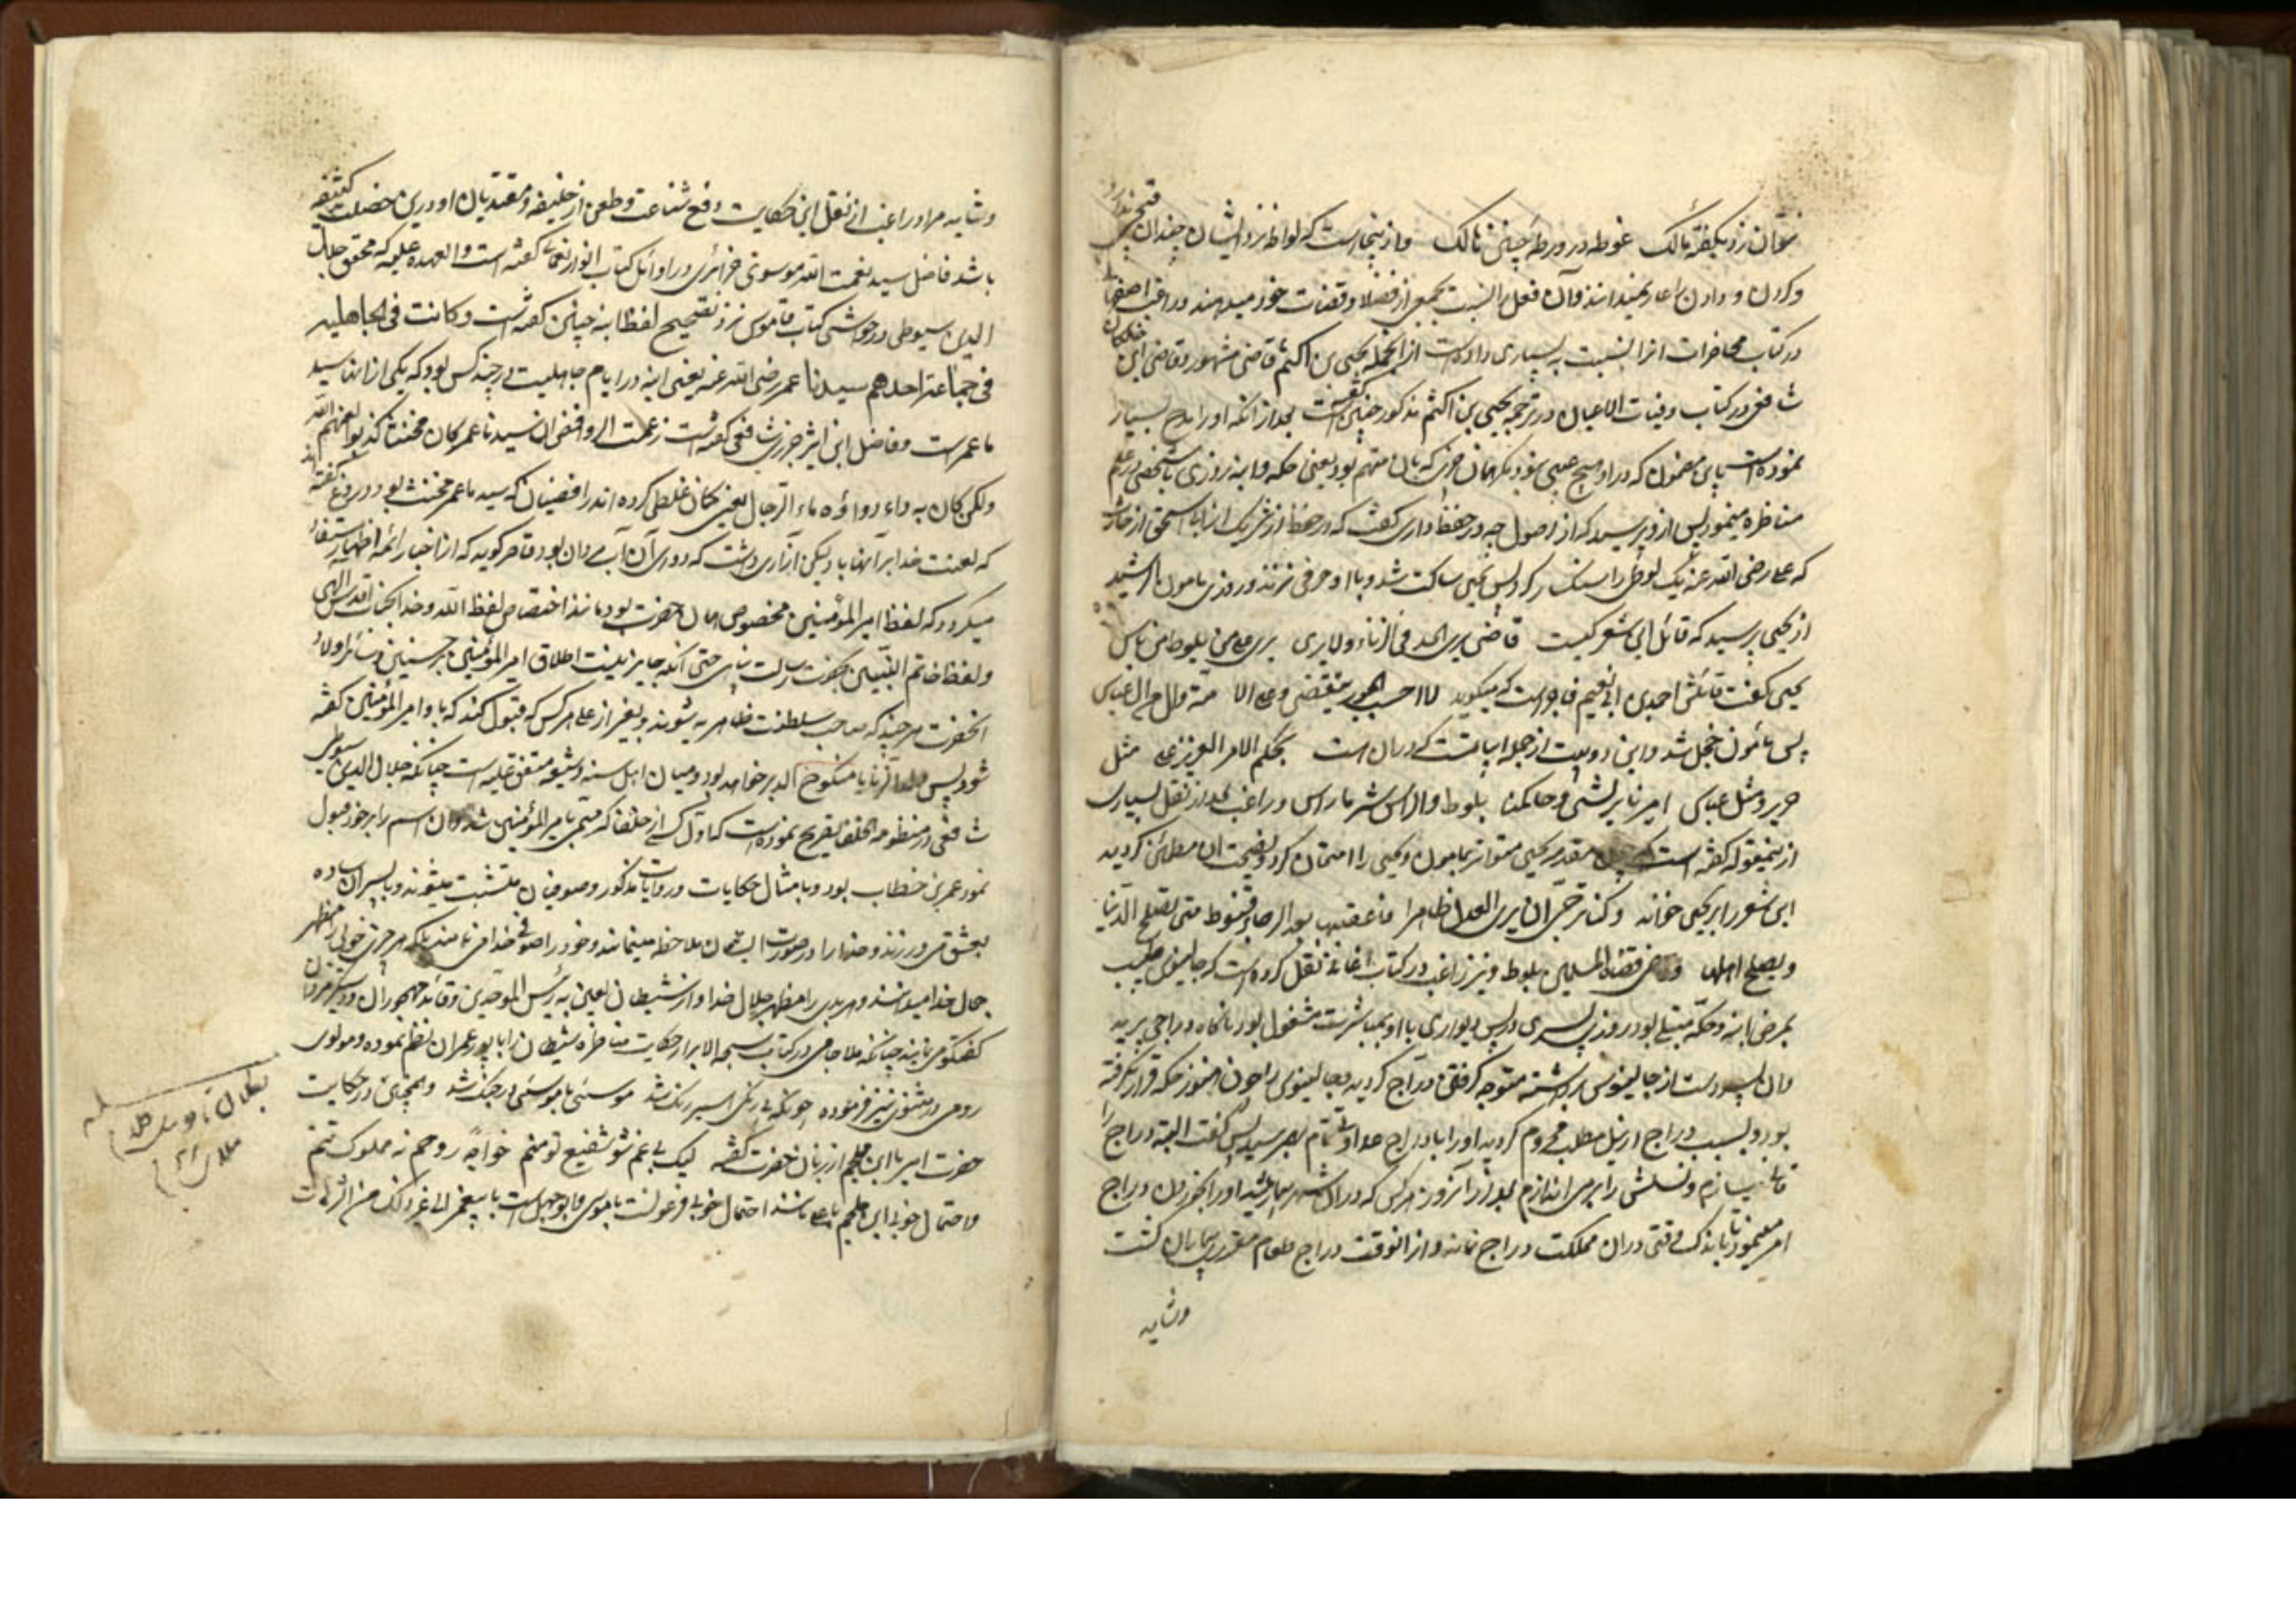 نتوان زد بکفر مالک غوطه در ورطهٔ چنین نالک و از ینجاست که لواط نزد ایشان چندان قبحی ندارد
و کردن و دادن را عار نمیدانند و آن فعل را نسبت بجمعی از فضلا و قضات خود میدهند و راغب اصفهانی
در کتاب محاضرات انرا نسبت به بسیاری داده است از انجمله یحیی بن اکثم قاضی مشهور و قاضی ابن خلکان
شافعی در کتاب وفیات الاعیان در ترجمه یحیی بن اکثم مذکور چنین گفته است بعد از انکه او را مدح بسیار
نموده است باین مضمون که در او هیچ عیبی نبود مگر همان چیزی که بان متهم بود یعنی حکه و ابنه روزی با شخصی در علم
مناظره مینمود پس از وی پرسید که از اصول چه در حفظ داری گفت که در حفظ از شریک از ابی اسحق از حارث
که علی رضی الله عنه یک لوطی را سنگسار کرد پس یحیی ساکت شد و با او حرفی نزد و روزی مامون الرشید
از یحیی پرسید که قائل این شعر کیست قاضی یری الحد فی الزناء ولا یری علی من یلوط من باس
یحیی گفت قائلش احمد بن ابی نعیم فاجر است که میگوید لا احسب الجور ینقضی و علی الامة وال من ال عباس
پس مأمون خجل شد و این دو بیت از جمله ابیاتست که در ان است بحکم الامر العزیز علی مثل
جریر و مثل عباس امیرنا یرتشی و حاکمنا یلوط والراس شر ما راس و راغب بعد از نقل بسیاری
از ینمقوله گفته است که چون مقدمه یحیی متواتر بمامون و یحیی را امتحان کرد و بفضیحت ان مطلع گردید
این شعر را بر یحیی خواند و کنا نرجی ان نری العدل ظاهرا فاعقبنا بعد الرجاء قنوط متی تصلح الدنیا
و یصلح اهلها و قاضی قضاة المسلمین یلوط و نیز راغب در کتاب اغانی نقل کرده است که جالینوس طبیب
بمرض ابنه و حکه مبتلی بود روزی پسری در پس دیواری با او بمباشرت مشغول بود ناگاه دراجی پرید
و ان پسر دست از جالینوس برداشته متوجه گرفتن دراج گردید و جالینوس را چون هنوز حکه قرار نگرفته
بود و بسبب دراج از نیل مطلب محروم گردید او را با دراج عداوت تام بهم رسید پس گفت البته دراج را
فانی سازم و نسلش را براندازم بعد از آنروز هر کس که در ان شهر بیمار میشد او را بخوردن دراج
امر مینمود تا باندک وقتی دران مملکت دراج نماند و از انوقت دراج طعام مقرری بیماران گشت
و شاید
و شاید مراد راغب از نقل این حکایت دفع شناعت و طعن از خلیفه و مقتدیان او در این خصلت کثیفه
باشد فاضل سید نعمت الله موسوی جزائری در اوائل کتاب انوار نعمانیه گفته است و العهدة علیه که محقق جلال
الدین سیوطی در حواشی کتاب قاموس نزد تصحیح لفظ ابنه چنین گفته است و کانت فی الجاهلیه
فی جماعة احدهم سیدنا عمر رضی الله عنه یعنی ابنه در ایام جاهلیت در چند کس بود که یکی از انها سید
ما عمر است و فاضل ابن اثیر جزری شافعی گفته است زعمت الروافض ان سیدنا عمر کان مخنثا کذبوا لعنهم الله
ولکن کان به داء دواؤه ماء الرجال یعنی گمان غلطی کرده اند رافضیان که سید ما عمر مخنث بود دروغ گفته اند
که لعنت خدا بر آنها باد لیکن ازاری داشت که دوای آن آب مردان بود قاصر گوید که از اخبار ائمه اطهار مستفاد
میگردد که لفظ امیر المؤمنین مخصوص همان حضرت بود مانند اختصاص لفظ الله و خدا بجناب اقدس الهی
و لفظ خاتم النبیین بحضرت رسالت پناهی حتی آنکه جایز نیست اطلاق امیر المؤمنین بر حسنین و سائر اولاد
انحضرت هر چند که صاحب سلطنت ظاهریه شوند و بغیر از علی هر کس که قبول کند که باو امیر المؤمنین گفته
شود پس یا منکوح الدبر خواهد بود و میان اهل سنه و شیعه متفق علیه است چنانکه جلال الدین سیوطی
شافعی در منظومه الخلفا تصریح نموده است که اول کسی از خلفا که مسمی بامیر المؤمنین شد و ان اسم را بر خود قبول
نمود عمر بن خطاب بود و بامثال حکایات و روایات مذکور و صوفیان متشبث میشوند و با پسران ساده
بعشق می ورزند و خدا را در صورت ایشان ملاحظه مینمایند و خود را صوفی خدا می نامند بلکه هر چیز خوبی را مظهر
جمال خدا میدانند و هر بدی را مظهر جلال خدا و از شیطان لعین به رئیس الموحدین و قائد مهجوران و
گفتگو می نمایند چنانکه ملا جامی در کتاب سبحة الابرار حکایت مناظره شیطان را با پور عمران نظم نموده و مولوی
رومی در مثنوی نیز فرموده چونکه بی رنگی اسیر رنگ شد موسئی با موسئی در جنگ شد و همچنین در حکایت
حضرت امیر با ابن ملجم از زبان حضرت گفته لیک بی غم شو شفیع تو منم خواجهٔ روحم نه مملوک تنم
و احتمال خوبی ابن ملجم با علی مانند احتمال خوبی فرعونست با موسی و ابوجهلست با پیغمبر الی غیر ذلک من